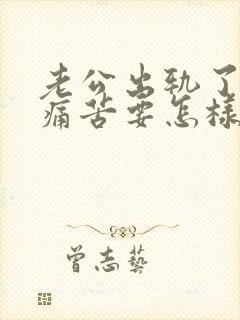 老公出轨了
痛苦要怎樣
曾志藝